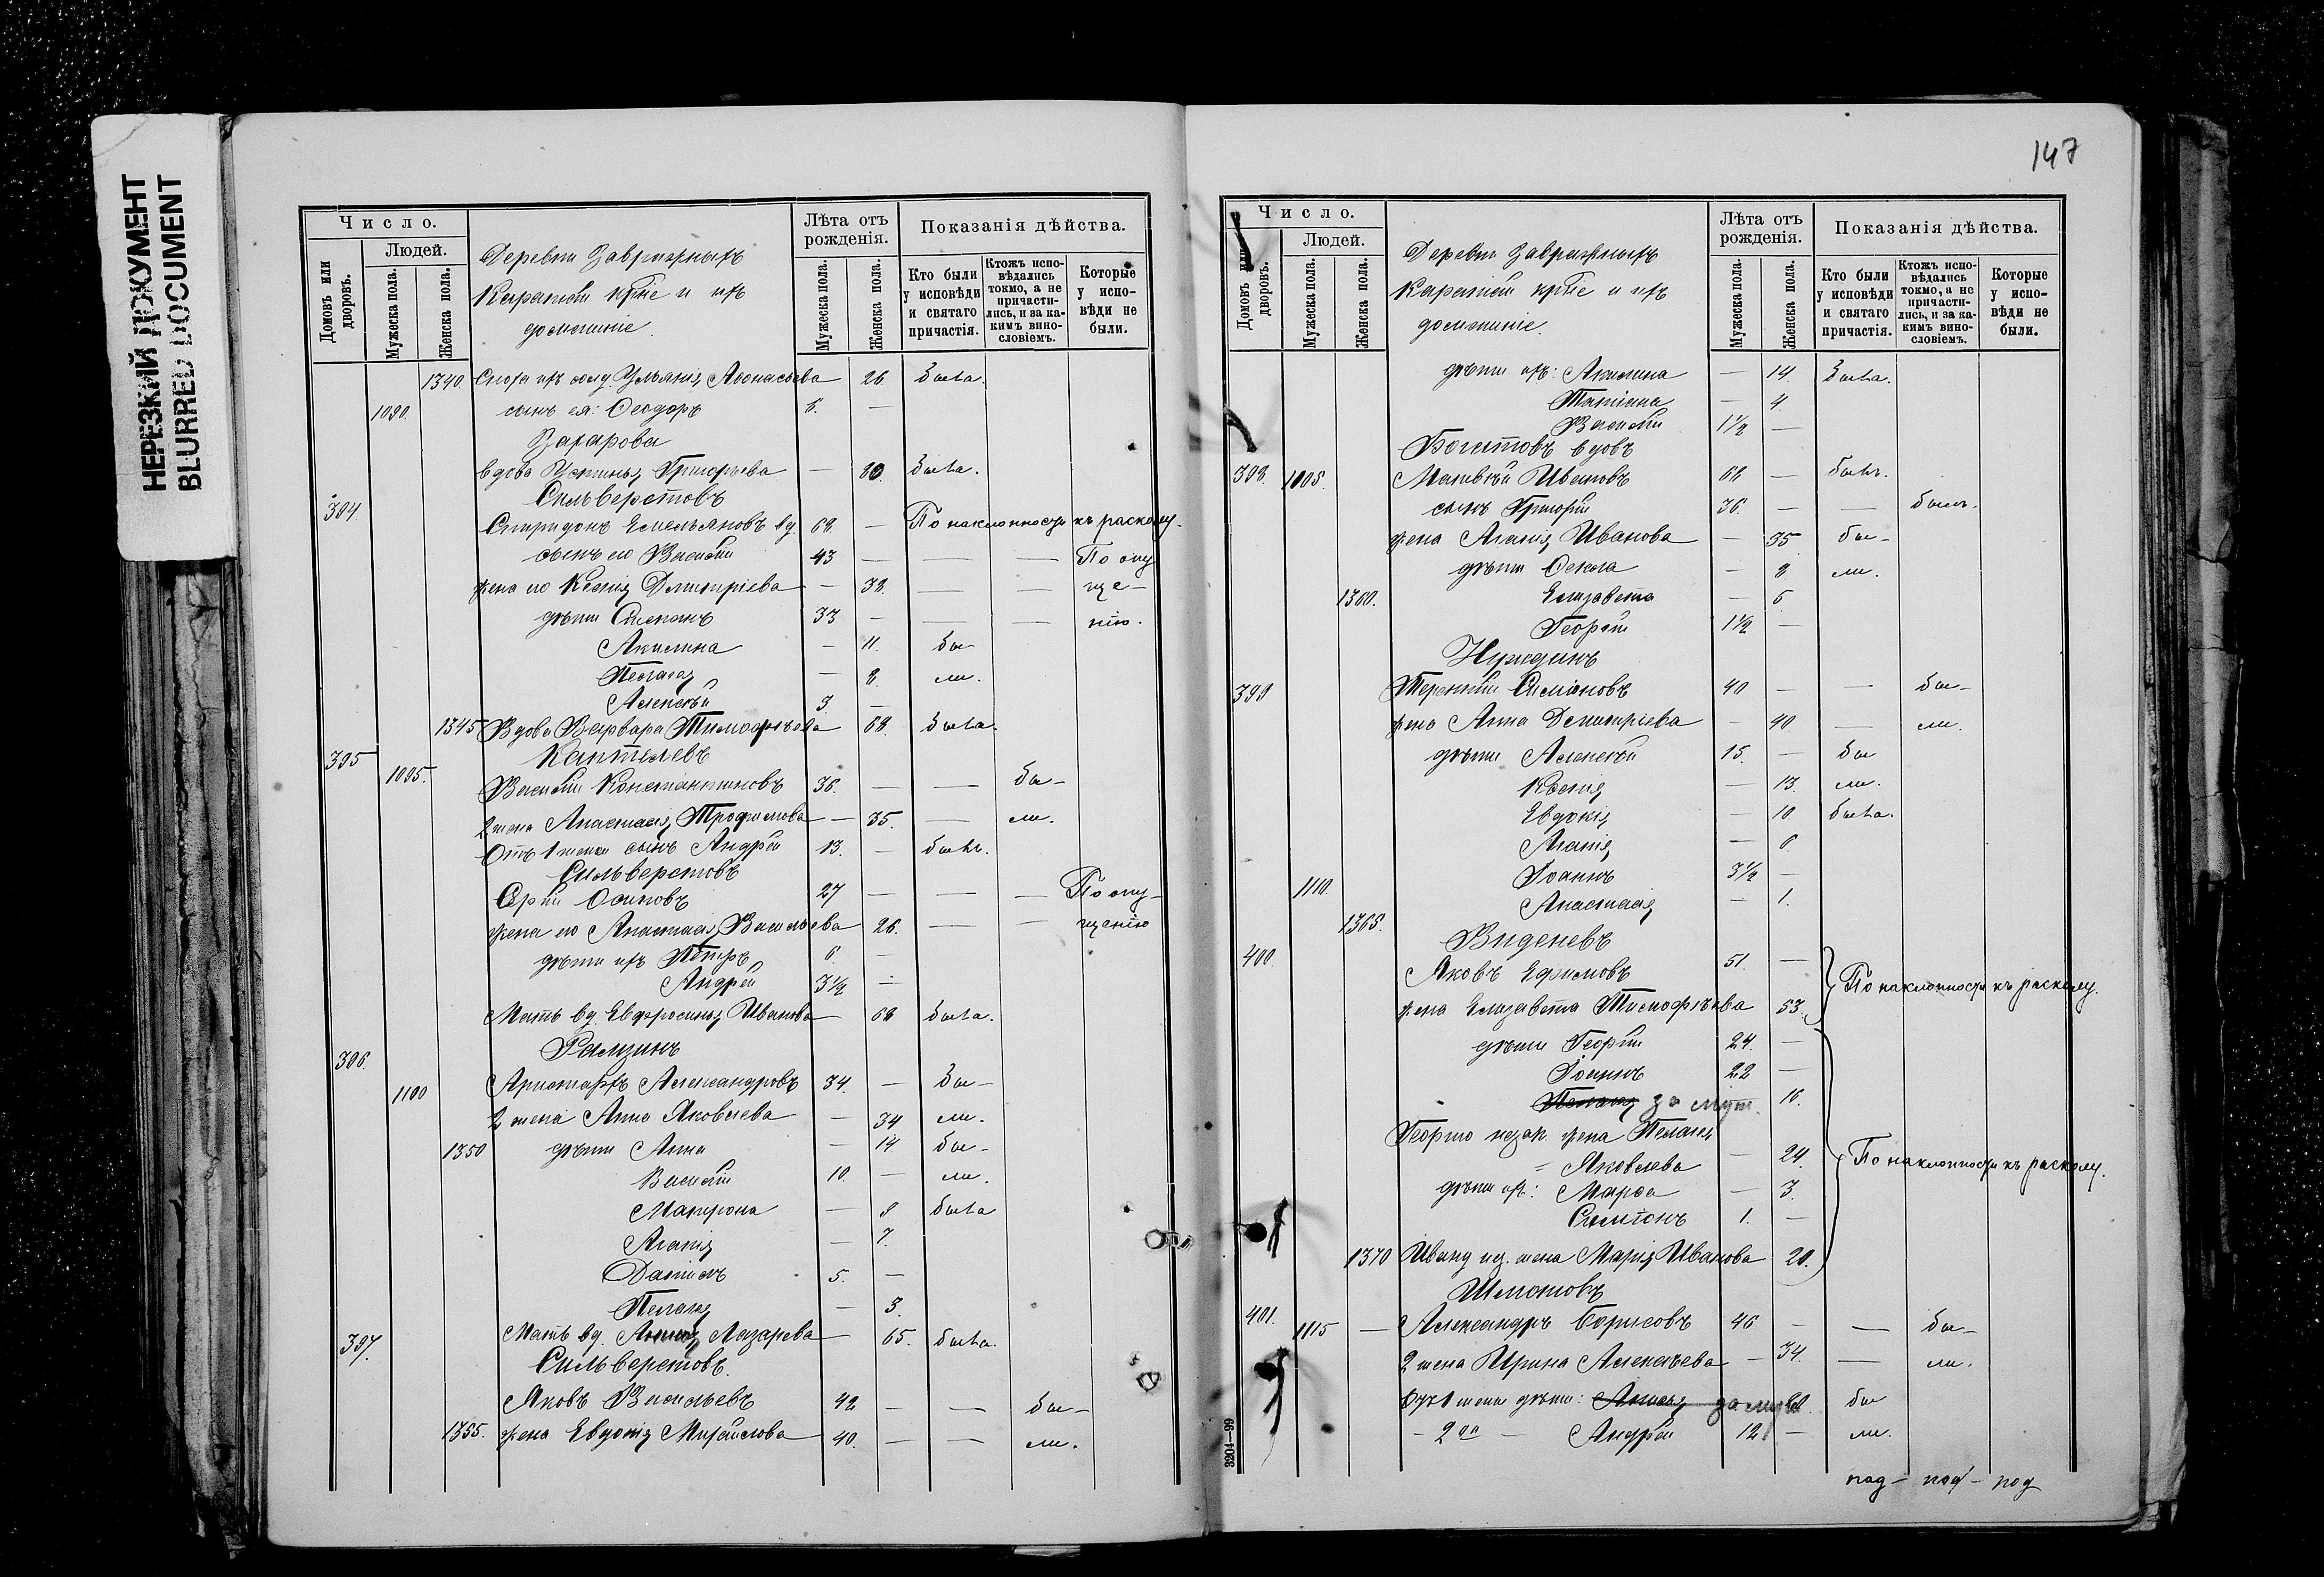 НЕРЕЗКИЙ ДОКУМЕНТ
BLURRED DOCUMENT
Число.
Людей.
Домовъ или дворовъ.
Мужеска пола.
Женска пола.
Деревни Завражныхъ
Каратай кр-не и ихъ
домашніе
Лѣта отъ рожденія.
Мужеска пола.
Женска пола.
Показанія дѣйства.
Кто были у исповѣди и святаго причастія.
Ктожъ испо-вѣдались токмо, а не причасти-лись, и за ка-кимъ вино-словіемъ.
Которые у испо-вѣди не были.
1340 Сноха ихъ солд. Ульянія Аѳонасьева 26 была.
1090 сынъ ея: Ѳеодоръ 6. —
Захарова
вдова Устинья Григорьева — 80. была.
394 Сильверстовъ
Спиридонъ Емельяновъ вд. 68. — По наклонности къ расколу.
сынъ его Василій 43 — — — По опу
жена его Ксенія Димитріева — 38. — — ще-
дѣти Степанъ 33 — — — нію.
Акилина — 11. бы
Пелагія — 8. ли.
Алексѣй 3 —
1345 Вдова Варвара Тимоѳѣева 68. была.
395 Каптелевъ
1095. Василій Константиновъ 36. — — бы-
2 жена Анастасія Трофимова — 35. — ли.
Отъ 1 жены сынъ Андрей 13. — былъ.
Сильверстовъ
Сергій Осиповъ 27 — — — По опу-
жена его Анастасія Васильева 26. — — щенію
дѣти ихъ Петръ 6. —
Андрей 3½ —
Мать вд. Евфросинья Иванова 68 была.
396. Рамзинъ
1100 Аристархъ Александровъ 34. — бы-
2 жена Анна Яковлева — 34 ли.
1350 дѣти Анна — 14 бы-
Василій 10. — ли.
Матрона — 8 была
Агапія — 7.
Даніилъ 5. —
Пелагія — 3.
Мать вд. Лазарева — 65. была.
397. Сильверстовъ.
Яковъ Васильевъ 42 — — бы-
1355. жена Евдокія Михайлова 40. — — ли.
147
Число.
Людей.
Домовъ или дворовъ.
Мужеска пола.
Женска пола.
Деревни Завражныхъ
Каратай кр-не и ихъ
домашніе.
Лѣта отъ рожденія.
Мужеска пола.
Женска пола.
Показанія дѣйства.
Кто были у исповѣди и святаго причастія.
Ктожъ испо-вѣдались токмо, а не причасти-лись, и за ка-кимъ вино-словіемъ.
Которые у испо-вѣди не были.
дѣти ихъ: Акилина — 14. была.
Татіана — 4.
Василій 1½ —
Богатовъ вдовъ
398. 1105. Матвѣй Ивановъ 68 — былъ.
сынъ Григорій 36. — — былъ.
жена Агапія Иванова — 35 бы-
дѣти Ѳекла — 8 ли.
1360. Елизавета — 6.
Георгій 1½ —
Нуждинъ
399 Терентій Симіоновъ 40 — — бы-
жена Анна Димитріева — 40. — ли.
дѣти Алексѣй 15. — бы
Ксенія — 13. ли.
Евдокія — 10 была.
Агапія — 6
1110. Іоаннъ 3½ —
Анастасія — 1.
1365. Виденевъ
400. Яковъ Ефимовъ 51. — По наклонности къ расколу.
жена Елизавета Тимофѣева 53.
дѣти Георгій 24. —
Іоаннъ 22 —
Пелагія за муж. 16.
Георгію незак. жена Пелагія
Яковлева — 24. По наклонности къ расколу.
дѣти ихъ: Марѳа — 3.
Симіонъ 1. —
1370 Ивану нез. жена Марія Иванова 20.
Шмотовъ
401. 1115 — Александръ Борисовъ 46 — — бы-
2 жена Ирина Алексѣева — 34. — ли.
Отъ 1 жены дѣти: замуж. бы
- 2ой — Андрей 12 — ли.
под - под - под
3204—99